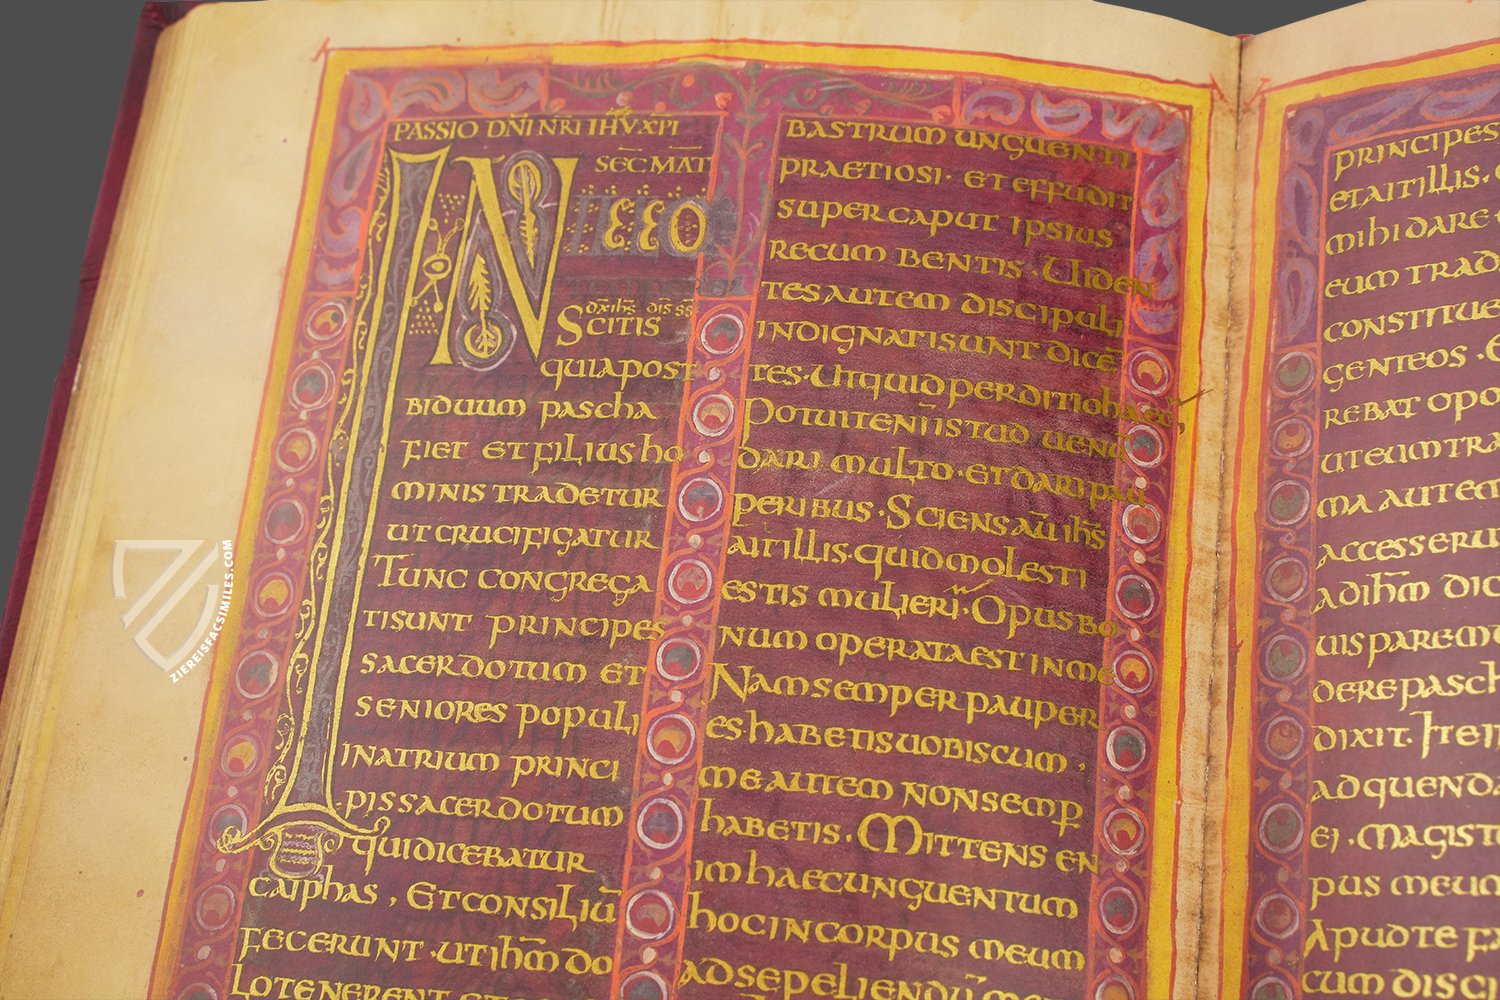 PASSIO DN̄I N̄RI IHV XP̄I
SEC̄. MAT̄
IN ILLO
TEMPORE
dx̄ ihs̄ dis̄ s̄s̄
SCITIS
quiapost
biduum pascha
fiet et filius ho
minis tradetur
ut crucifigatur
Tunc congrega
tisunt principes
sacerdotum et
seniores populi
inatrium princi
pissacerdotum
quidicebatur
caiphas, Etconsiliū
fecerunt. utihm̄ do
lotenerent et
bastrum unguenti
praetiosi. et effudit
supercaput ipsius
recum bentis. Uiden
tesautem discipuli
indignatisunt dicē
tes. Utquid perditio haec
Potuit enī istud uenū
dari multo. et dari pau
peribus. Sciens aū ihs̄
ait illis. quid molesti
estis mulieri. Opusbo
num operataest inme
Nam semper pauper
es habetis uobiscum,
me autem nonsemp̄
habetis. Mittens en
im haecunguentum
hocin corpus meum
adsepeliendū me
principes
etaitillis.
mihi dare
eum trad
constitue
genteos.
rebat opo
uteumtra
ma autem
accesseru
adihm̄ dic
uisparem
dere pasch
dixit. Iteī
adquenda
ei. Magist
pus meum
Apudte fa
cum disci
ZIEREISFACSIMILES.COM